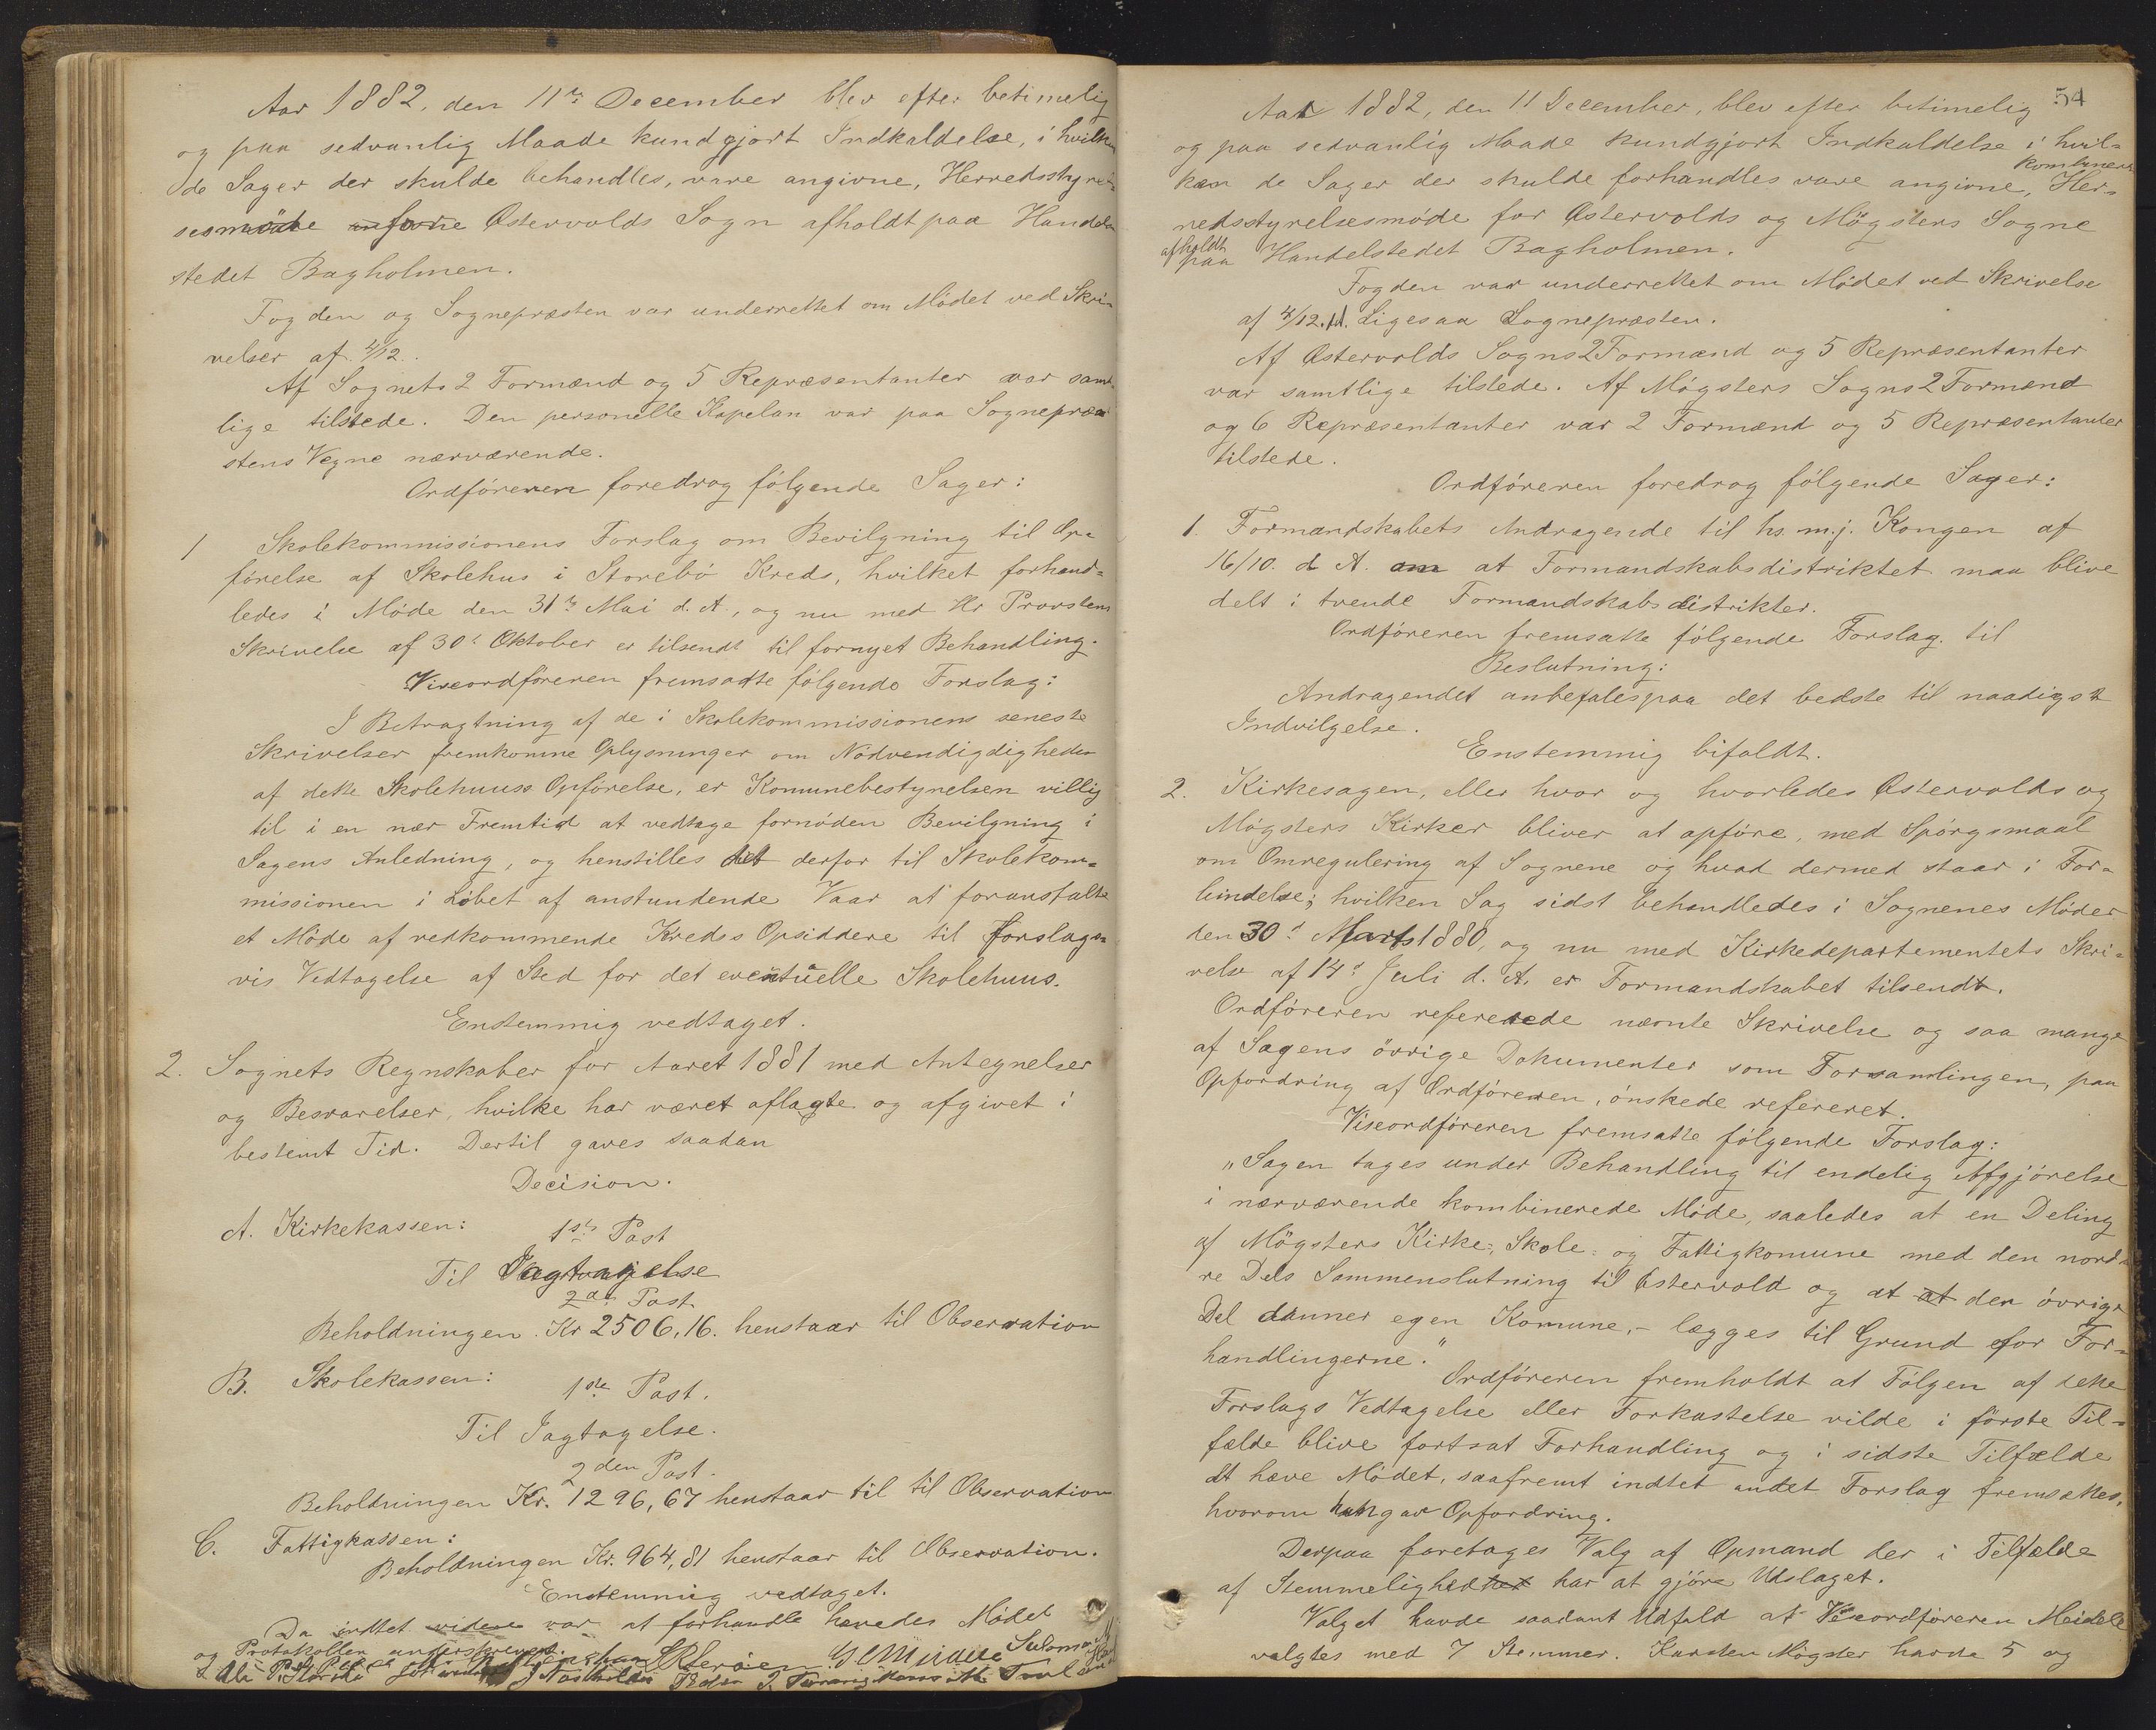 Aar 1882, den 11te December blev efter betimelig
og paa sedvanlig Maade kundgjort Indkaldelse, i hvilken
de Sager der skulde behandles, vare angivne, Herredsstyrel-
sesmøde Østervolds Sogn afholdt paa Handels-
stedet Bagholmen.
Fogden og Sognepræsten var underrettet om Mödet ved Skri-
velser af 4/12.
Af Sognets 2 Formænd og 5 Repræsentanter var samt-
lige tilstede. Den personelle Kapelan var paa Sognepræ-
stens Vegne nærværende.
Ordföreren foredrog fölgende Sager:
1 Skolekommissionens Forslag om Bevilgning til Op-
förelse af Skolehus i Storebö Kreds, hvilket forhand-
ledes i Möde den 31te Mai d. A., og nu med Hr Provstens
Skrivelse af 30t Oktober er tilsendt til fornyet Behandling.
Viseordföreren fremsatte fölgende Forslag:
I Betragtning af de i Skolekommissionens seneste
Skrivelser fremkomne Oplysninger om Nödvendigdigheden
af dette Skolehuuss Opförelse, er Komunebestyrelsen villig
til i en nær Fremtid at vedtage fornöden Bevilgning i
Sagens Anledning, og henstilles det derfor til Skolekom-
missionen i Löbet af anstundende Vaar at foranstalte
et Möde af vedkommende Kredss Opsiddere til Forslags-
vis Vedtagelse af Sted for det eventuelle Skolehuus.
Enstemmig vedtaget.
2. Sognets Regnskaber for Aaret 1881 med Antegnelser
og Besvarelser, hvilke har været aflagte og afgivet i
bestemt Tid. Dertil gaves saadan
Decision.
A. Kirkekassen:
1ste Post
Til Iagttagelse
2den Post
Beholdningen Kr 2506,16. henstaar til Observation
B. Skolekassen:
1ste Post.
Til Iagtagelse.
2den Post.
Beholdningen Kr. 1296,67 henstaar til til Observation
C. Fattigkassen:
Beholdningen Kr. 964,81 henstaar til Observation.
Enstemmig vedtaget.
Da indtet videre var at forhandle hævedes Mödet
og Protokollen underskrevet.
54
Aar 1882, den 11 December, blev efter betimelig
og paa sedvanlig Maade kundgjort Indkaldelse i hvil-
ken de Sager der skulde forhandles vare angivne, kombineret Her-
redsstyrelsesmöde for Østervolds og Mögsters Sogne
afholdt paa Handelstedet Bagholmen.
Fogden var underrettet om Mödet ved Skrivelse
af 4/12. Ligesaa Sognepræsten.
Af Østervolds Sogns 2 Formænd og 5 Repræsentanter
var samtlige tilstede. Af Mögsters Sogns 2 Formænd
og 6 Repræsentanter var 2 Formænd og 5 Repræsentanter
tilstede.
Ordföreren foredrog fölgende Sager:
1. Formandskabets Andragende til hs. m.j. Kongen af
16/10. d A. om at Formandskabsdistriktet maa blive
delt i tvende Formandskabsdistrikter.
Ordföreren fremsatte fölgende Forslag til
Beslutning:
Andragendet anbefales paa det bedste til naadigst
Indvilgelse.
Enstemmig bifaldt.
2. Kirkesagen, eller hvor og hvorledes Østervolds og
Mögsters Kirker bliver at opföre, med Spörgsmaal
om Omregulering af Sognene og hvad dermed staar i For-
bindelse; hvilken Sag sidst behandledes i Sognenes Möder
den 30t Marts 1880, og nu med Kirkedepartementets Skri-
velse af 14t Juli d. A. er Formandskabet tilsendt.
Ordföreren refererede nævnte Skrivelse og saa mange
af Sagens övrige Dokumenter som Forsamlingen, paa
Opfordring af Ordföreren, önskede refereret.
Viseordföreren fremsatte fölgende Forslag:
"Sagen tages under Behandling til endelig Afgjörelse
i nærværende kombinerede Möde, saaledes at en Deling
af Mögsters Kirke-, Skole- og Fattigkomune med den nord-
re Dels Sammenslutning til Østervold og at at den övrige
Del danner egen Komune, - lægges til Grund for For-
handlingerne."
Ordföreren fremholdt at Fölgen af dette
Forslags Vedtagelse eller Forkastelse vilde i förste Til-
fælde blive fortsat Forhandling og i sidste Tilfælde
at hæve Mödet, saafremt indtet andet Forslag fremsættes,
hvorom han gav Opfordring.
Derpaa foretages Valg af Opmand der i Tilfælde
af Stemmelighed har at gjöre Udslaget.
Valget havde saadant Udfald at Viseordföreren Meidell
valgtes med 7 Stemmer. Karsten Mögster havde 5 og